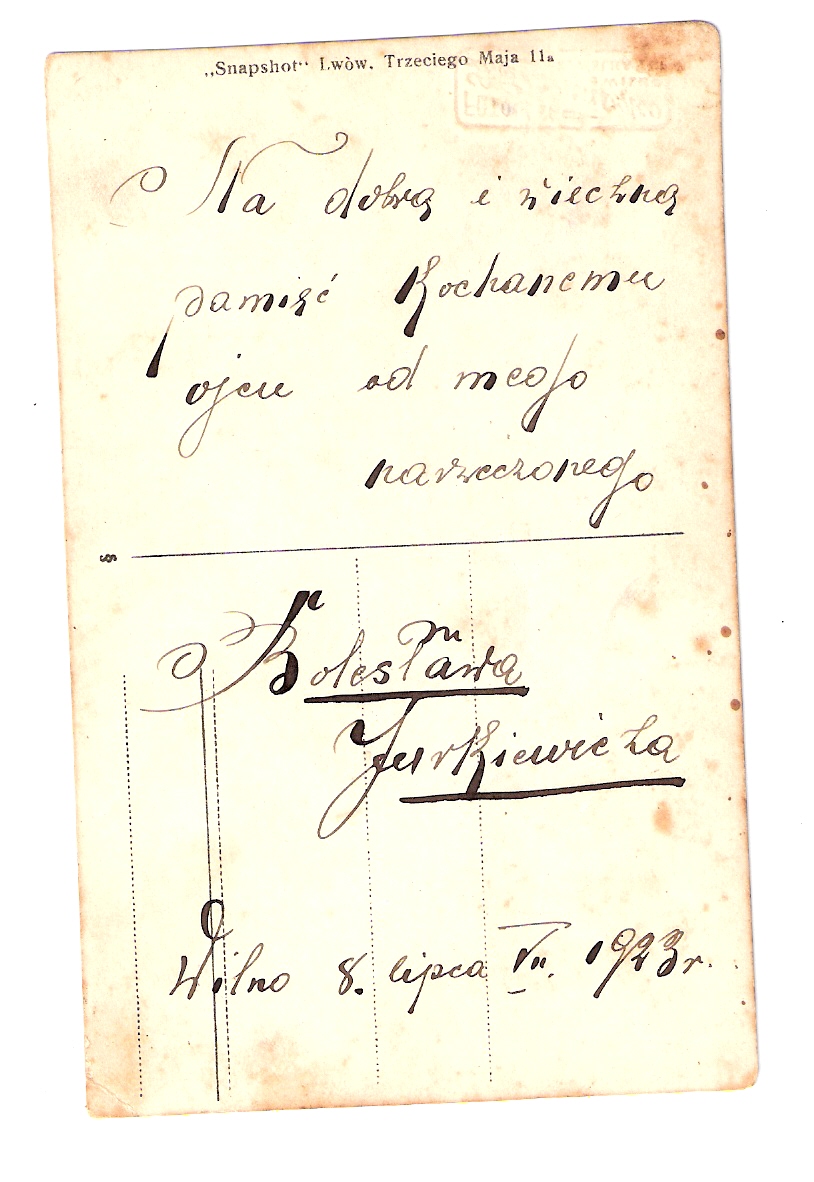 „Snapshot“ Lwòw. Trzeciego Maja 11a
Na dobrą i wieczną
pamięć Kochanemu
ojcu od mego
narzeczonego
Bolesława
Jurkiewicza
Wilno 8. lipca VII. 1923 r.